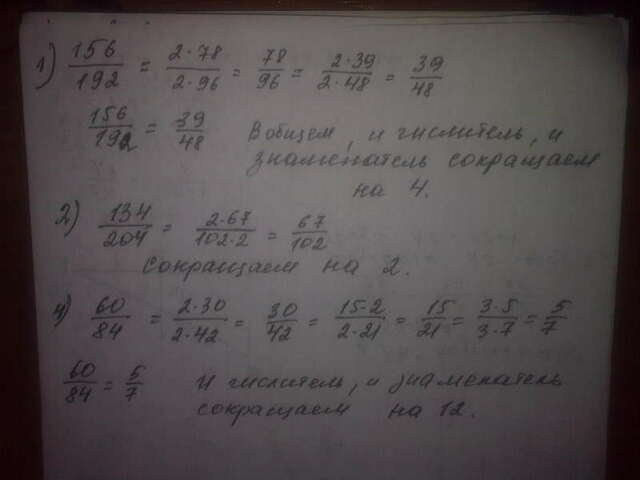 1) 156/192 = 2·78/2·96 = 78/96 = 2·39/2·48 = 39/48
156/192 = 39/48 В общем, и числитель, и
знаменатель сокращаем
на 4.
2) 134/204 = 2·67/102·2 = 67/102
сокращаем на 2.
4) 60/84 = 2·30/2·42 = 30/42 = 15·2/2·21 = 15/21 = 3·5/3·7 = 5/7
60/84 = 5/7 И числитель, и знаменатель
сокращаем на 12.